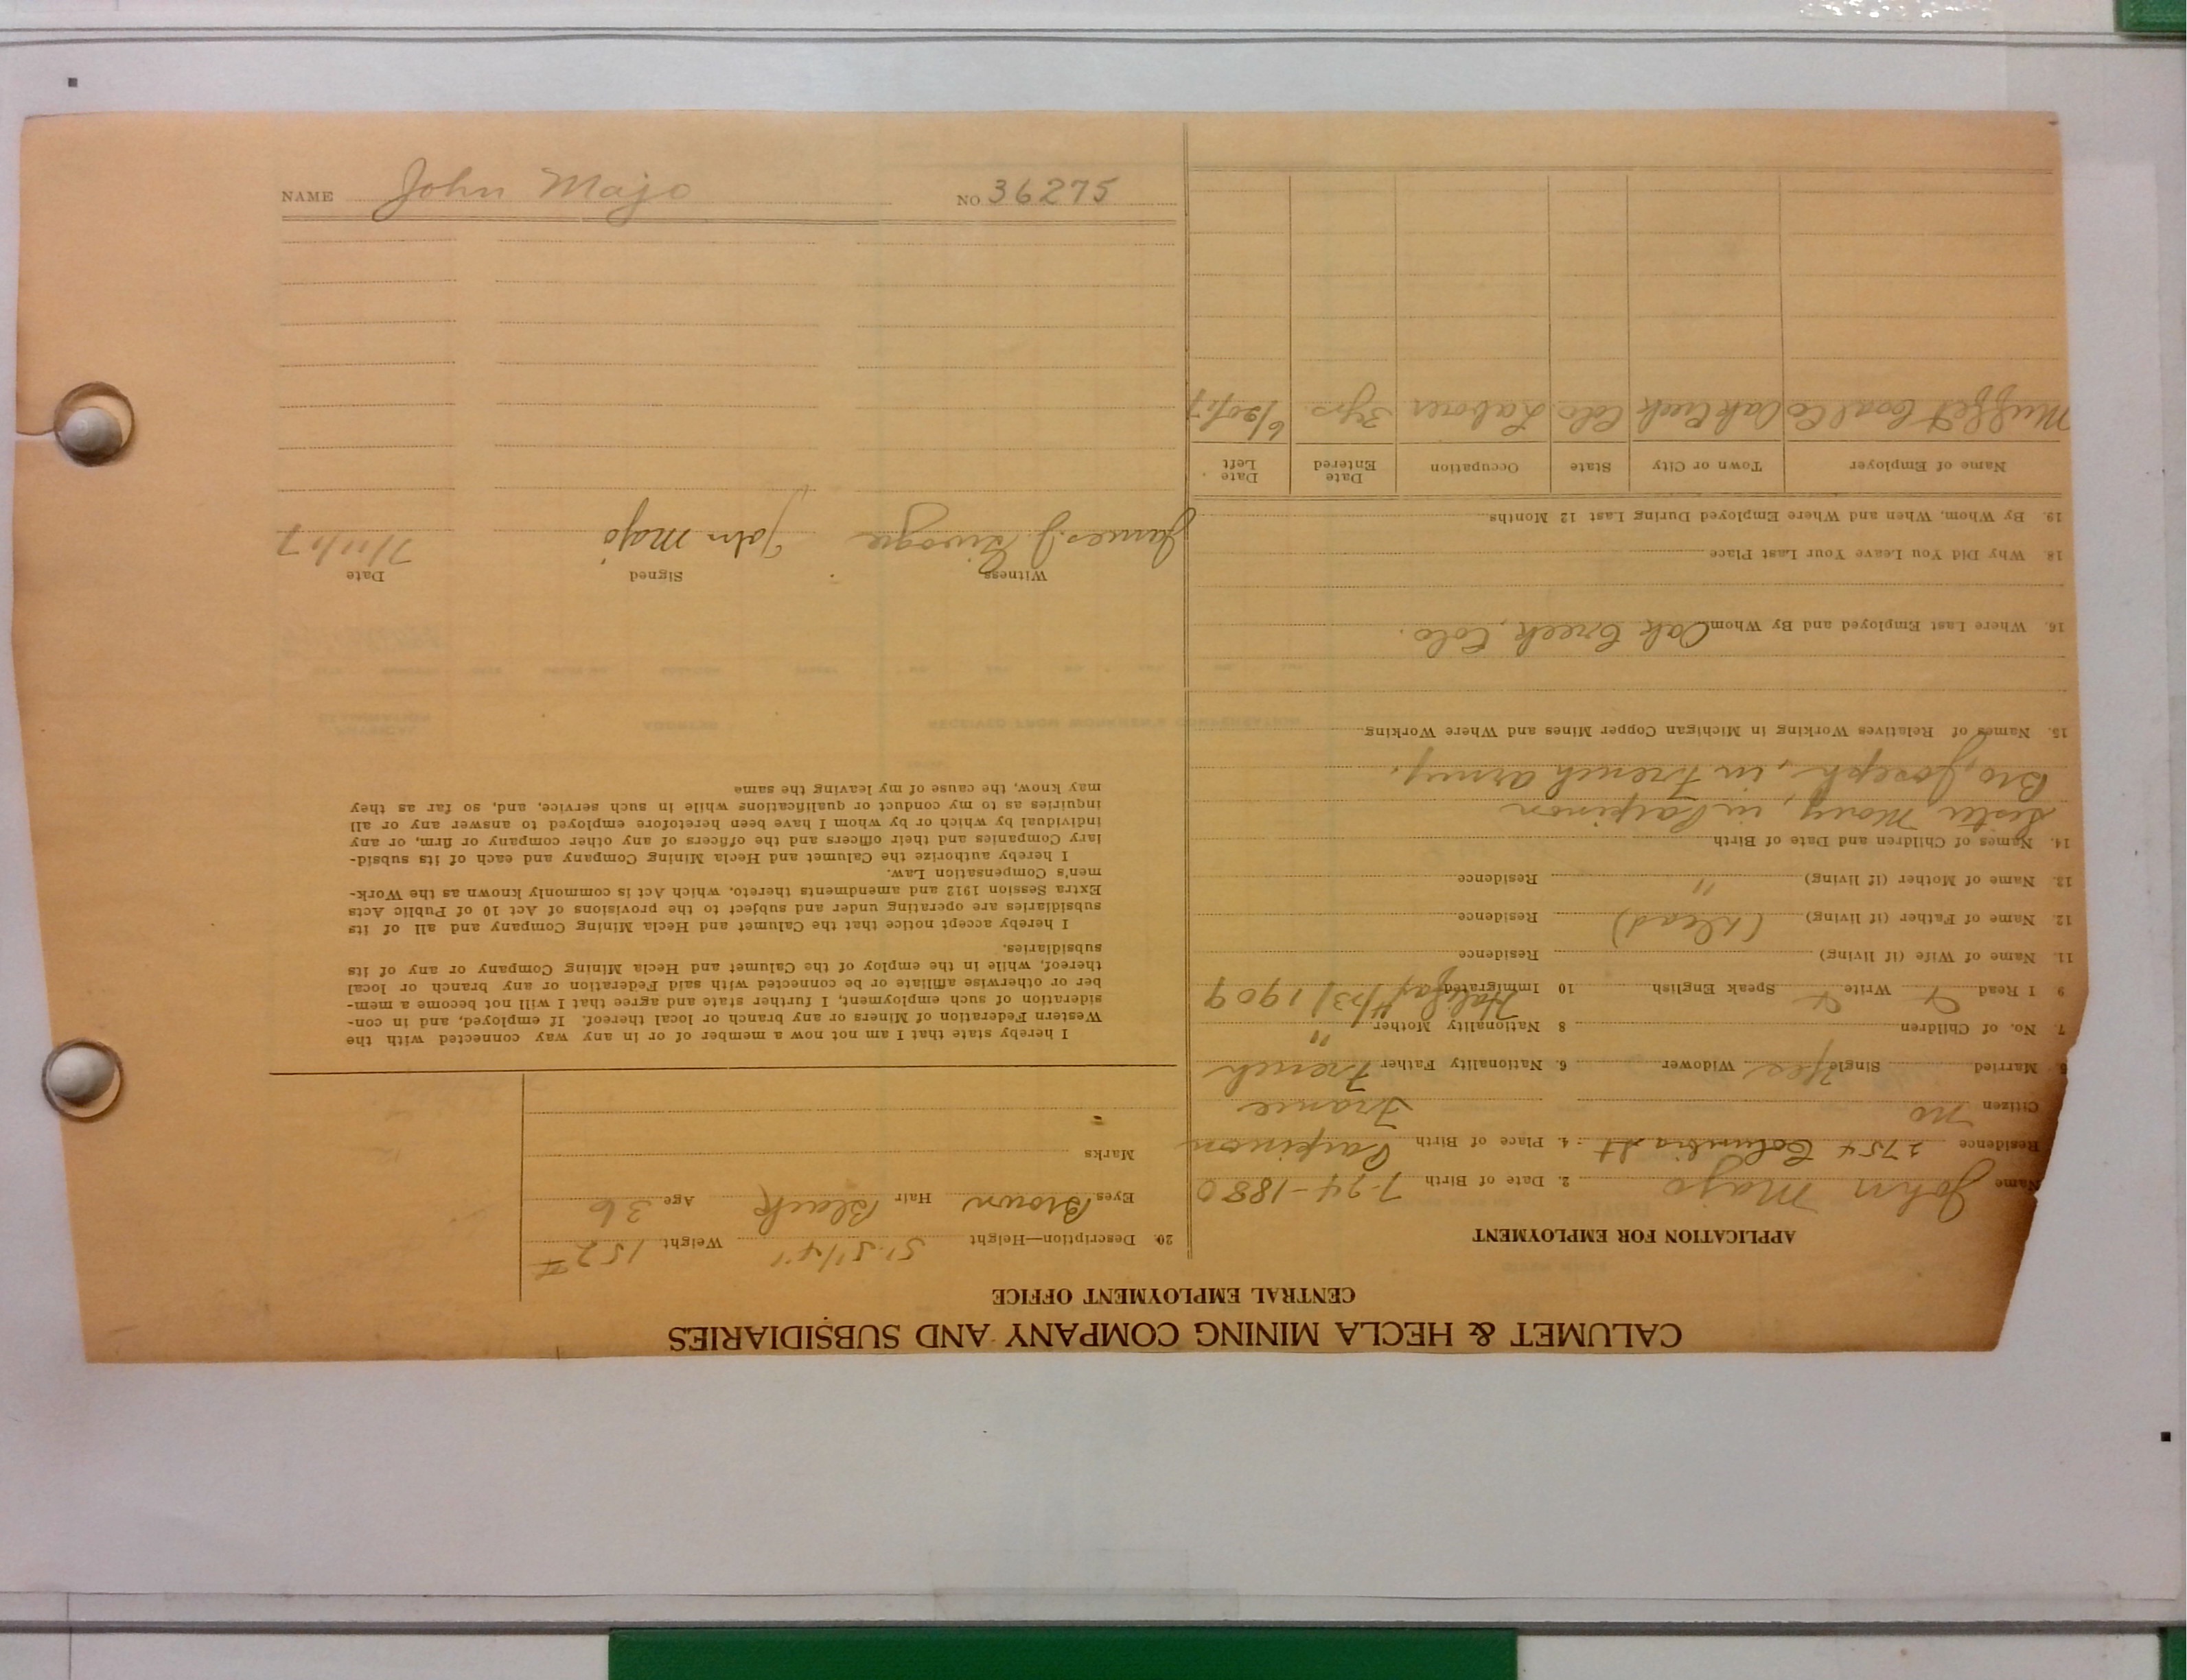 CALUMET & HECLA MINING COMPANY AND SUBSIDIARIES
CENTRAL EMPLOYMENT OFFICE
APPLICATION FOR EMPLOYMENT
Name John Majo 2. Date of Birth 7-24-1880
Residence 2754 Columbia St 4. Place of Birth
Citizen no France
5. Married Single Yes Widower 6. Nationality Father French
7. No. of Children 8 Nationality Mother "
9 I Read Write Speak English 10 Immigrated Halifax 1909
11. Name of Wife (if living) Residence
12. Name of Father (if living) (Dead) Residence
13. Name of Mother (if living) " Residence
14. Names of Children and Date of Birth
Sister Mary, in
Bro, Joseph, in French army.
15. Names of Relatives Working in Michigan Copper Mines and Where Working
16. Where Last Employed and By Whom Oak Creek, Colo.
18. Why Did You Leave Your Last Place
19. By Whom, When and Where Employed During Last 12 Months
Name of Employer Town or City State Occupation Date Entered Date Left
Muffet Coal Co Oak Creek Colo. Laborer 3 yrs. 6/20/17
20. Description—Height 5' 5 1/4" Weight 152 #
Eyes Brown Hair Black Age 36
Marks
I hereby state that I am not now a member of or in any way connected with the
Western Federation of Miners or any branch or local thereof. If employed, and in con-
sideration of such employment, I further state and agree that I will not become a mem-
ber or otherwise affiliate or be connected with said Federation or any branch or local
thereof, while in the employ of the Calumet and Hecla Mining Company or any of its
subsidiaries.
I hereby accept notice that the Calumet and Hecla Mining Company and all of its
subsidiaries are operating under and subject to the provisions of Act 10 of Public Acts
Extra Session 1912 and amendments thereto, which Act is commonly known as the Work-
men's Compensation Law.
I hereby authorize the Calumet and Hecla Mining Company and each of its subsid-
iary Companies and their officers and the officers of any other company or firm, or any
individual by which or by whom I have been heretofore employed to answer any or all
inquiries as to my conduct or qualifications while in such service, and, so far as they
may know, the cause of my leaving the same
Witness Signed Date
James J. John Majo 7/11/17
NAME John Majo NO 36275